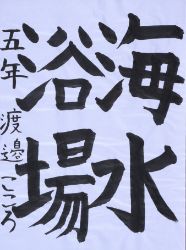 海水
浴場
五年 渡邉こころ